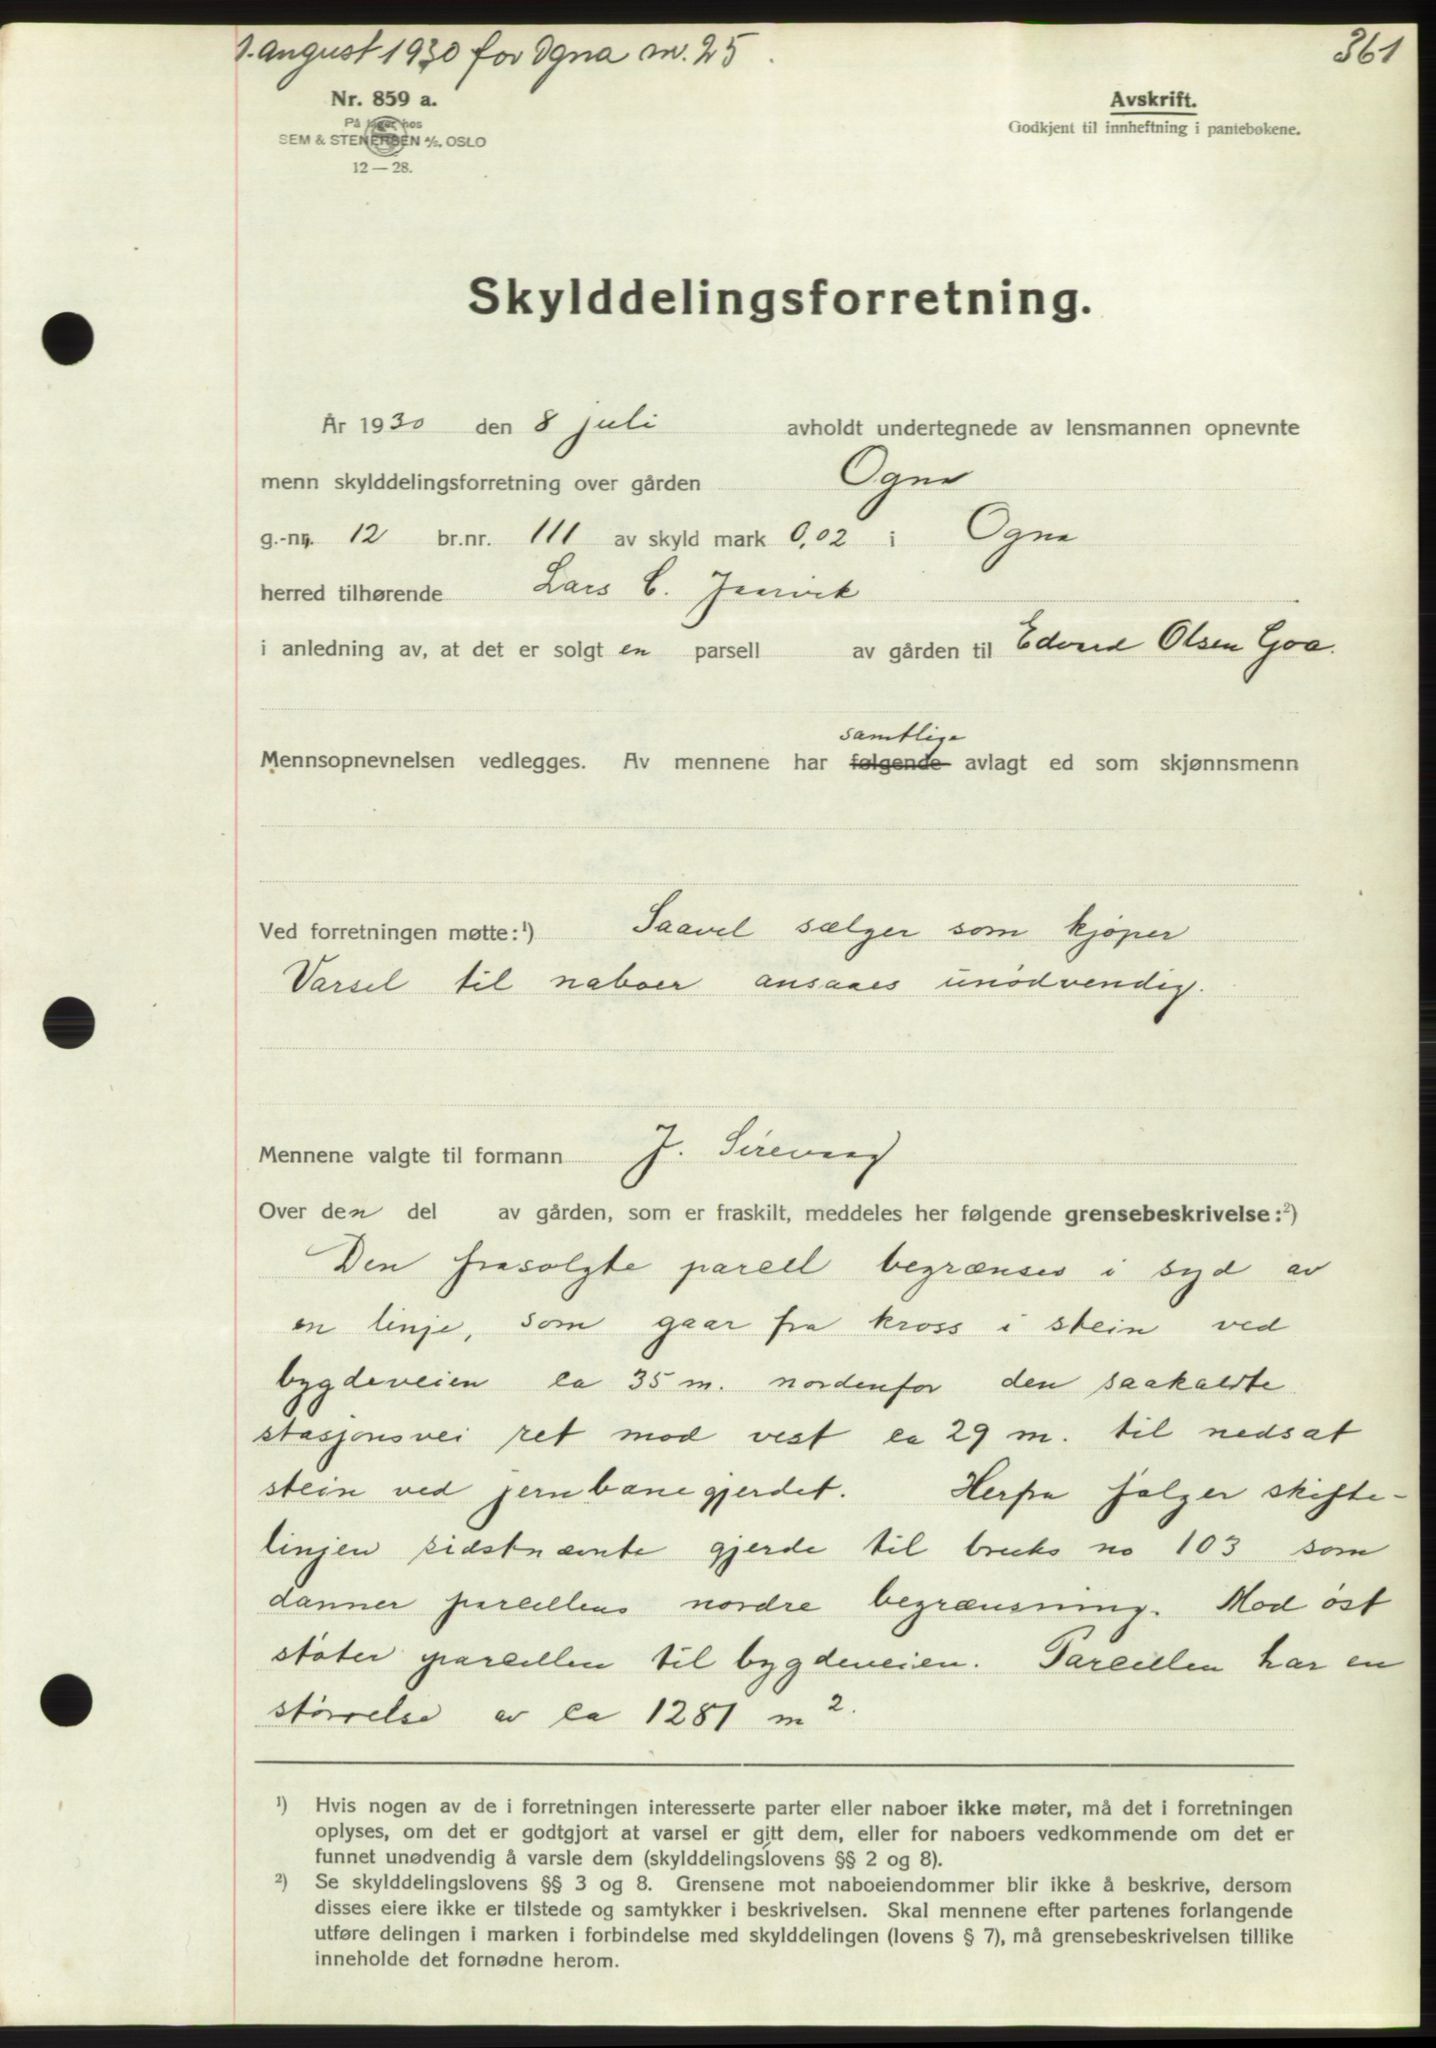 1. august 1930 for Ogna nr. 25.
361
Nr. 859 a.
På lager hos
SEM & STENERSEN A/S. OSLO
12 — 28.
Avskrift.
Godkjent til innheftning i pantebøkene.
Skylddelingsforretning.
År 1930 den 8 juli avholdt undertegnede av lensmannen opnevnte
menn skylddelingsforretning over gården Ogna
g.-nr. 12 br.nr. 111 av skyld mark 0,02 i Ogna
herred tilhørende Lars C. Jaarvik
i anledning av, at det er solgt en parsell av gården til Edvard Olsen Goa.
samtlige
Mennsopnevnelsen vedlegges. Av mennene har følgende avlagt ed som skjønnsmenn
Ved forretningen møtte:¹) Saavel sælger som kjøper
Varsel til naboer ansaaes unødvendig.
Mennene valgte til formann J. Sirevaag
Over den del av gården, som er fraskilt, meddeles her følgende grensebeskrivelse:²)
Den frasolgte parcell begrænses i syd av
en linje, som gaar fra kross i stein ved
bygdeveien ca 35 m. nordenfor den saakaldte
stasjonsvei ret mod vest ca 29 m. til nedsat
stein ved jernbanegjerdet. Herfra følger skifte-
linjen sidstnævnte gjerde til bruks no 103 som
danner parcellens nordre begrænsning. Mod øst
støter parcellen til bygdeveien. Parcellen har en
størrelse av ca 1281 m².
¹) Hvis nogen av de i forretningen interesserte parter eller naboer ikke møter, må det i forretningen
oplyses, om det er godtgjort at varsel er gitt dem, eller for naboers vedkommende om det er
funnet unødvendig å varsle dem (skylddelingslovens §§ 2 og 8).
²) Se skylddelingslovens §§ 3 og 8. Grensene mot naboeiendommer blir ikke å beskrive, dersom
disses eiere ikke er tilstede og samtykker i beskrivelsen. Skal mennene efter partenes forlangende
utføre delingen i marken i forbindelse med skylddelingen (lovens § 7), må grensebeskrivelsen tillike
inneholde det fornødne herom.